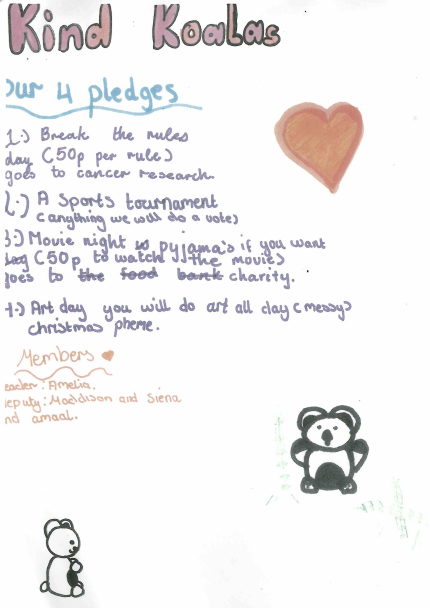 Kind Koalas
our 4 pledges
1.) Break the rules
day (50p per rule)
goes to cancer research.
2.) A sports tournament
(anything we will do a vote)
3.) Movie night is pyjama's if you want
(50p to watch the movie)
goes to the food bank charity.
4.) Art day you will do art all day (messy)
christmas pheme.
Members
eader: Amelia.
deputy: Maddison and Siena
nd amaal.